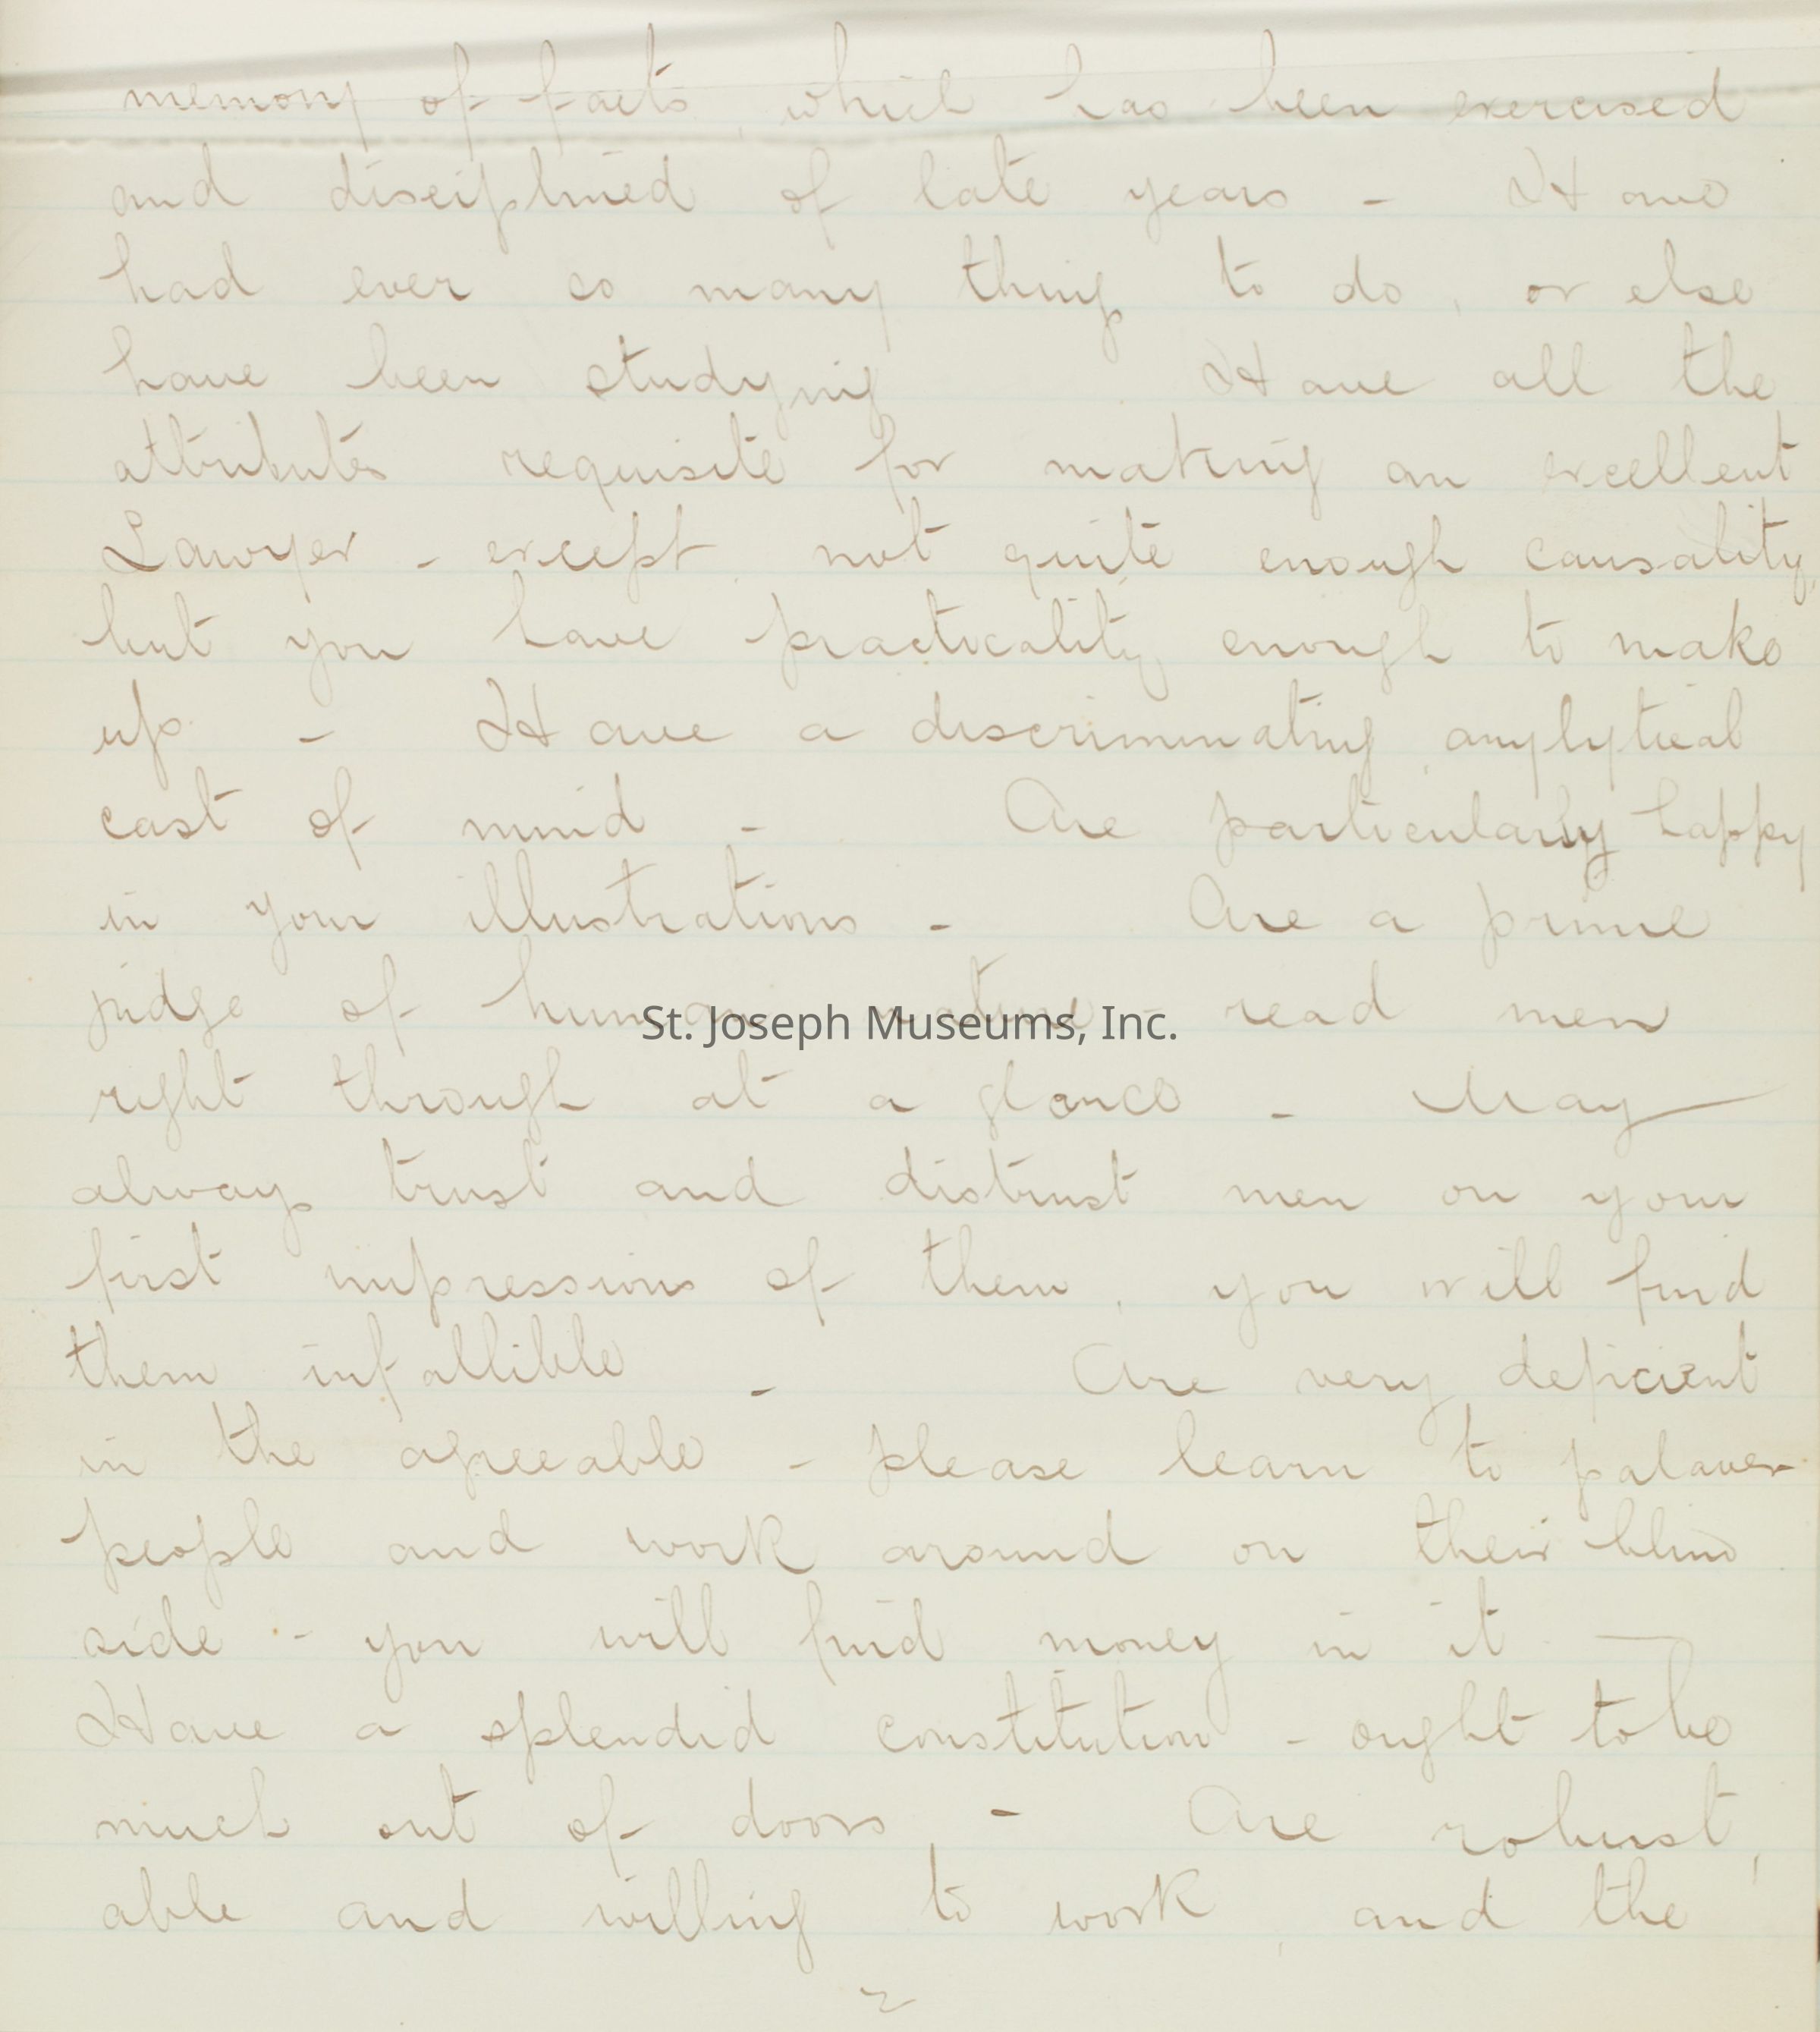 memory of facts, which has been exercised
and disciplined of late years - Have
had ever so many things to do, or else
have been studying Have all the
attributes requisite for making an excellent
Lawyer - except, not quite enough causality,
but you have practicality enough to make
up - Have a discriminating, anylytical
cast of mind - Are particularly happy
in your illustrations - Are a prime
judge of human nature - read men
right through at a glance - May
always trust and distrust men on your
first impressions of them, you will find
them infallible - Are very deficient
in the agreeable - please learn to palaver
people and work around on their blind
side - you will find money in it -
Have a splendid constitution - ought to be
much out of doors, - Are robust,
able and willing to work, and the
2
St. Joseph Museums, Inc.